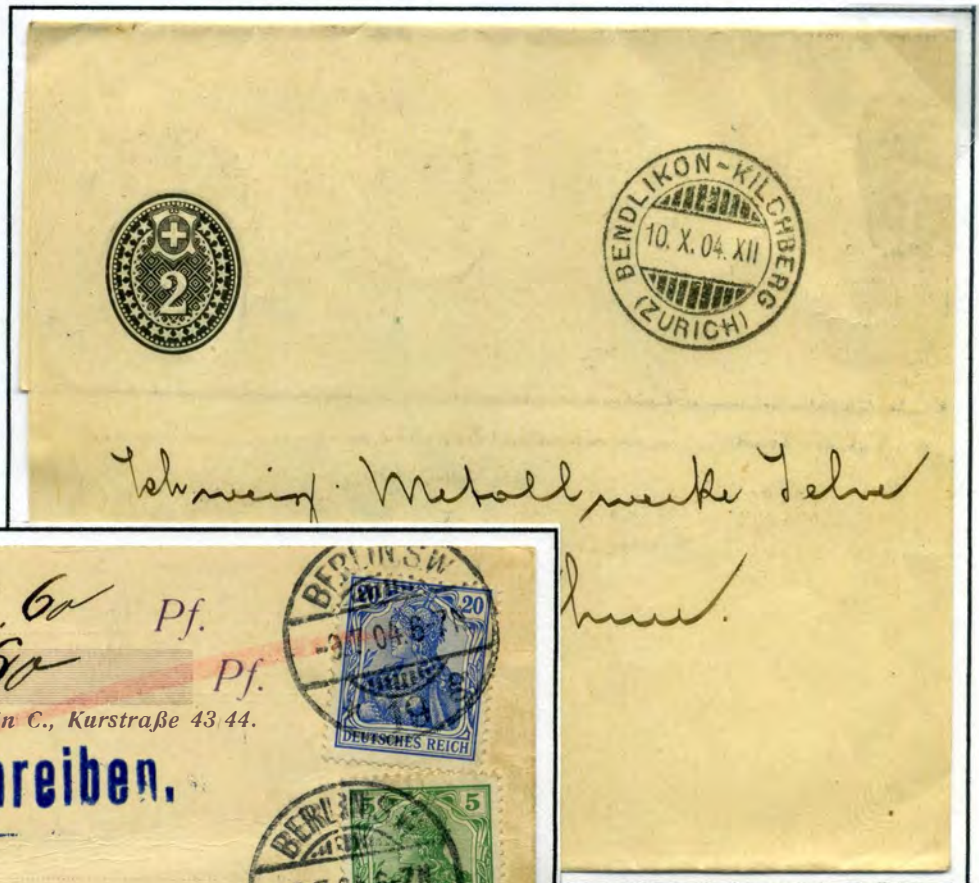 2
BENDLIKON-KILCHBERG
10. X. 04. XII
(ZURICH)
Schweiz. Metallwerke Selve
60 Pf.
Pf.
n C., Kurstraße 43 44.
reiben.
BERLIN S.W
04. 6-7N
19
20
DEUTSCHES REICH
BERLIN S.W
5